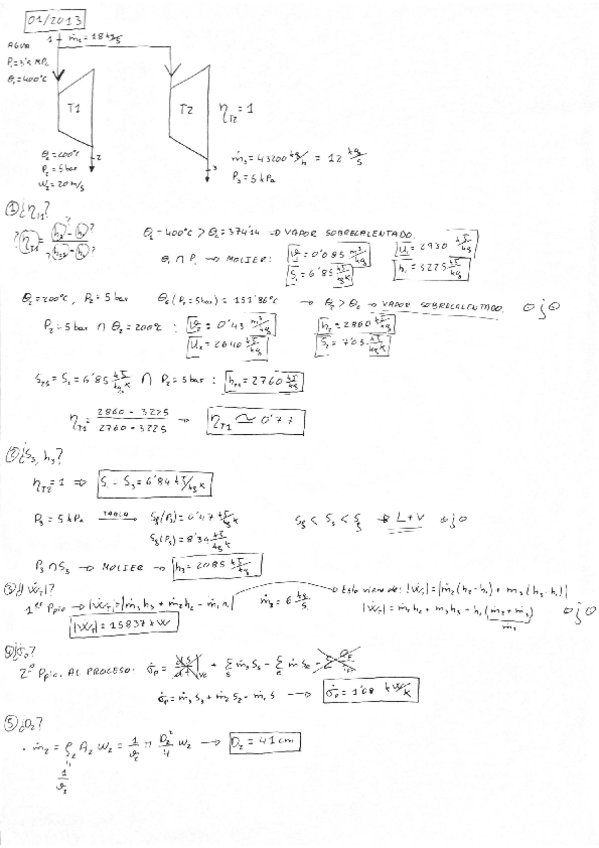 01/2013
1 ṁ₁ = 18 kg/s
AGUA
P₁ = 3'5 MPa
θ₁ = 400°C
T1
T2
η_T2 = 1
2
3
θ₂ = 200°C
P₂ = 5 bar
W₂ = 20 m/s
ṁ₃ = 43200 kg/h = 12 kg/s
P₃ = 5 kPa
① ¿η_T1?
θ₁ = 400°C > θ_c = 374'14 ⇒ VAPOR SOBRECALENTADO
θ₁ ∩ P₁ → MOLIER:
S₁ = 6'85 kJ/kgK
h₁ = 3225 kJ/kg
θ₂ = 200°C, P₂ = 5 bar θ_s (P₂ = 5 bar) = 151'86°C → θ₂ > θ_s → VAPOR SOBRECALENTADO. OjO
P₂ = 5 bar ∩ θ₂ = 200°C :
v₂ = 0'43 m³/kg
h₂ = 2860 kJ/kg
u₂ = 2640 kJ/kg
S₂ = 7'05 kJ/kgK
S_TS = S₁ = 6'85 kJ/kgK ∩ P₂ = 5 bar : h_TS = 2760 kJ/kg
η_T1 = (2860 - 3225) / (2760 - 3225) → η_T1 ≃ 0'77
② ¿S₃, h₃?
η_T2 = 1 ⇒ S₁ - S₃ = 6'84 kJ/kgK
P₃ = 5 kPa TABLA → Sf(P₃) = 0'47 kJ/kgK
L+V OjO
P₃ ∩ S₃ → MOLIER → h₃ = 2085 kJ/kg
1er Ppio → |Ẇ_T| = |ṁ₃h₃ + ṁ₂h₂ - ṁ₁h₁| ṁ₂ = 6 kg/s
Esto viene de: |Ẇ_T| = |ṁ₂(h₂-h₁) + ṁ₃(h₃-h₁)|
|Ẇ_T| = 15837 kW
OjO
2º Ppio. AL PROCESO:
σ̇p = ṁ₃S₃ + ṁ₂S₂ - ṁ₁S → σ̇p = 1'08 kW/K
⑤ ¿D₂?
ṁ₂ = ρ₂ A₂ w₂ = 1/v₂ π D₂²/4 w₂ → D₂ = 41 cm
1/v₂